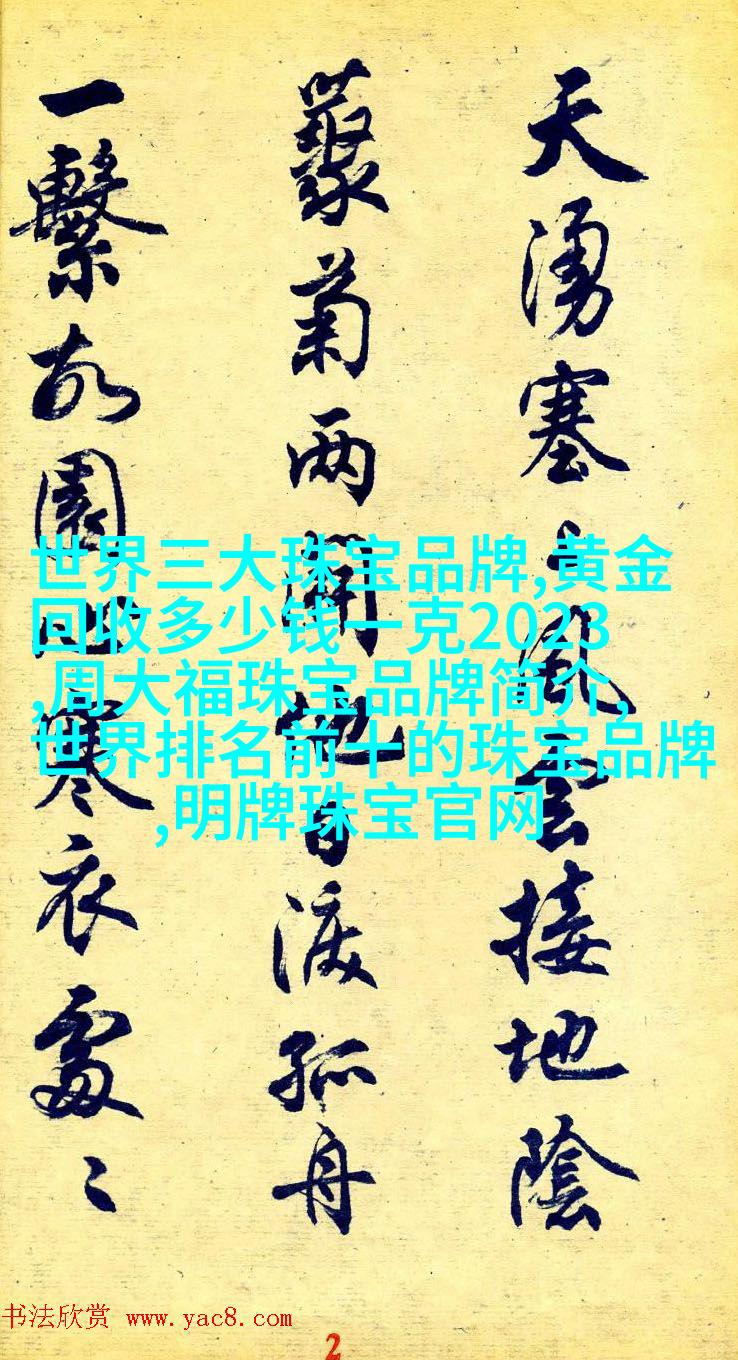 天湧塞上風雲接地陰
藂菊两開他日淚孤舟
一繫故園心寒衣處〻
世界三大珠宝品牌,黄金
回收多少钱一克2023
,周大福珠宝品牌简介,
世界排名前十的珠宝品牌
,明牌珠宝官网
书法欣赏 www.yac8.com
2